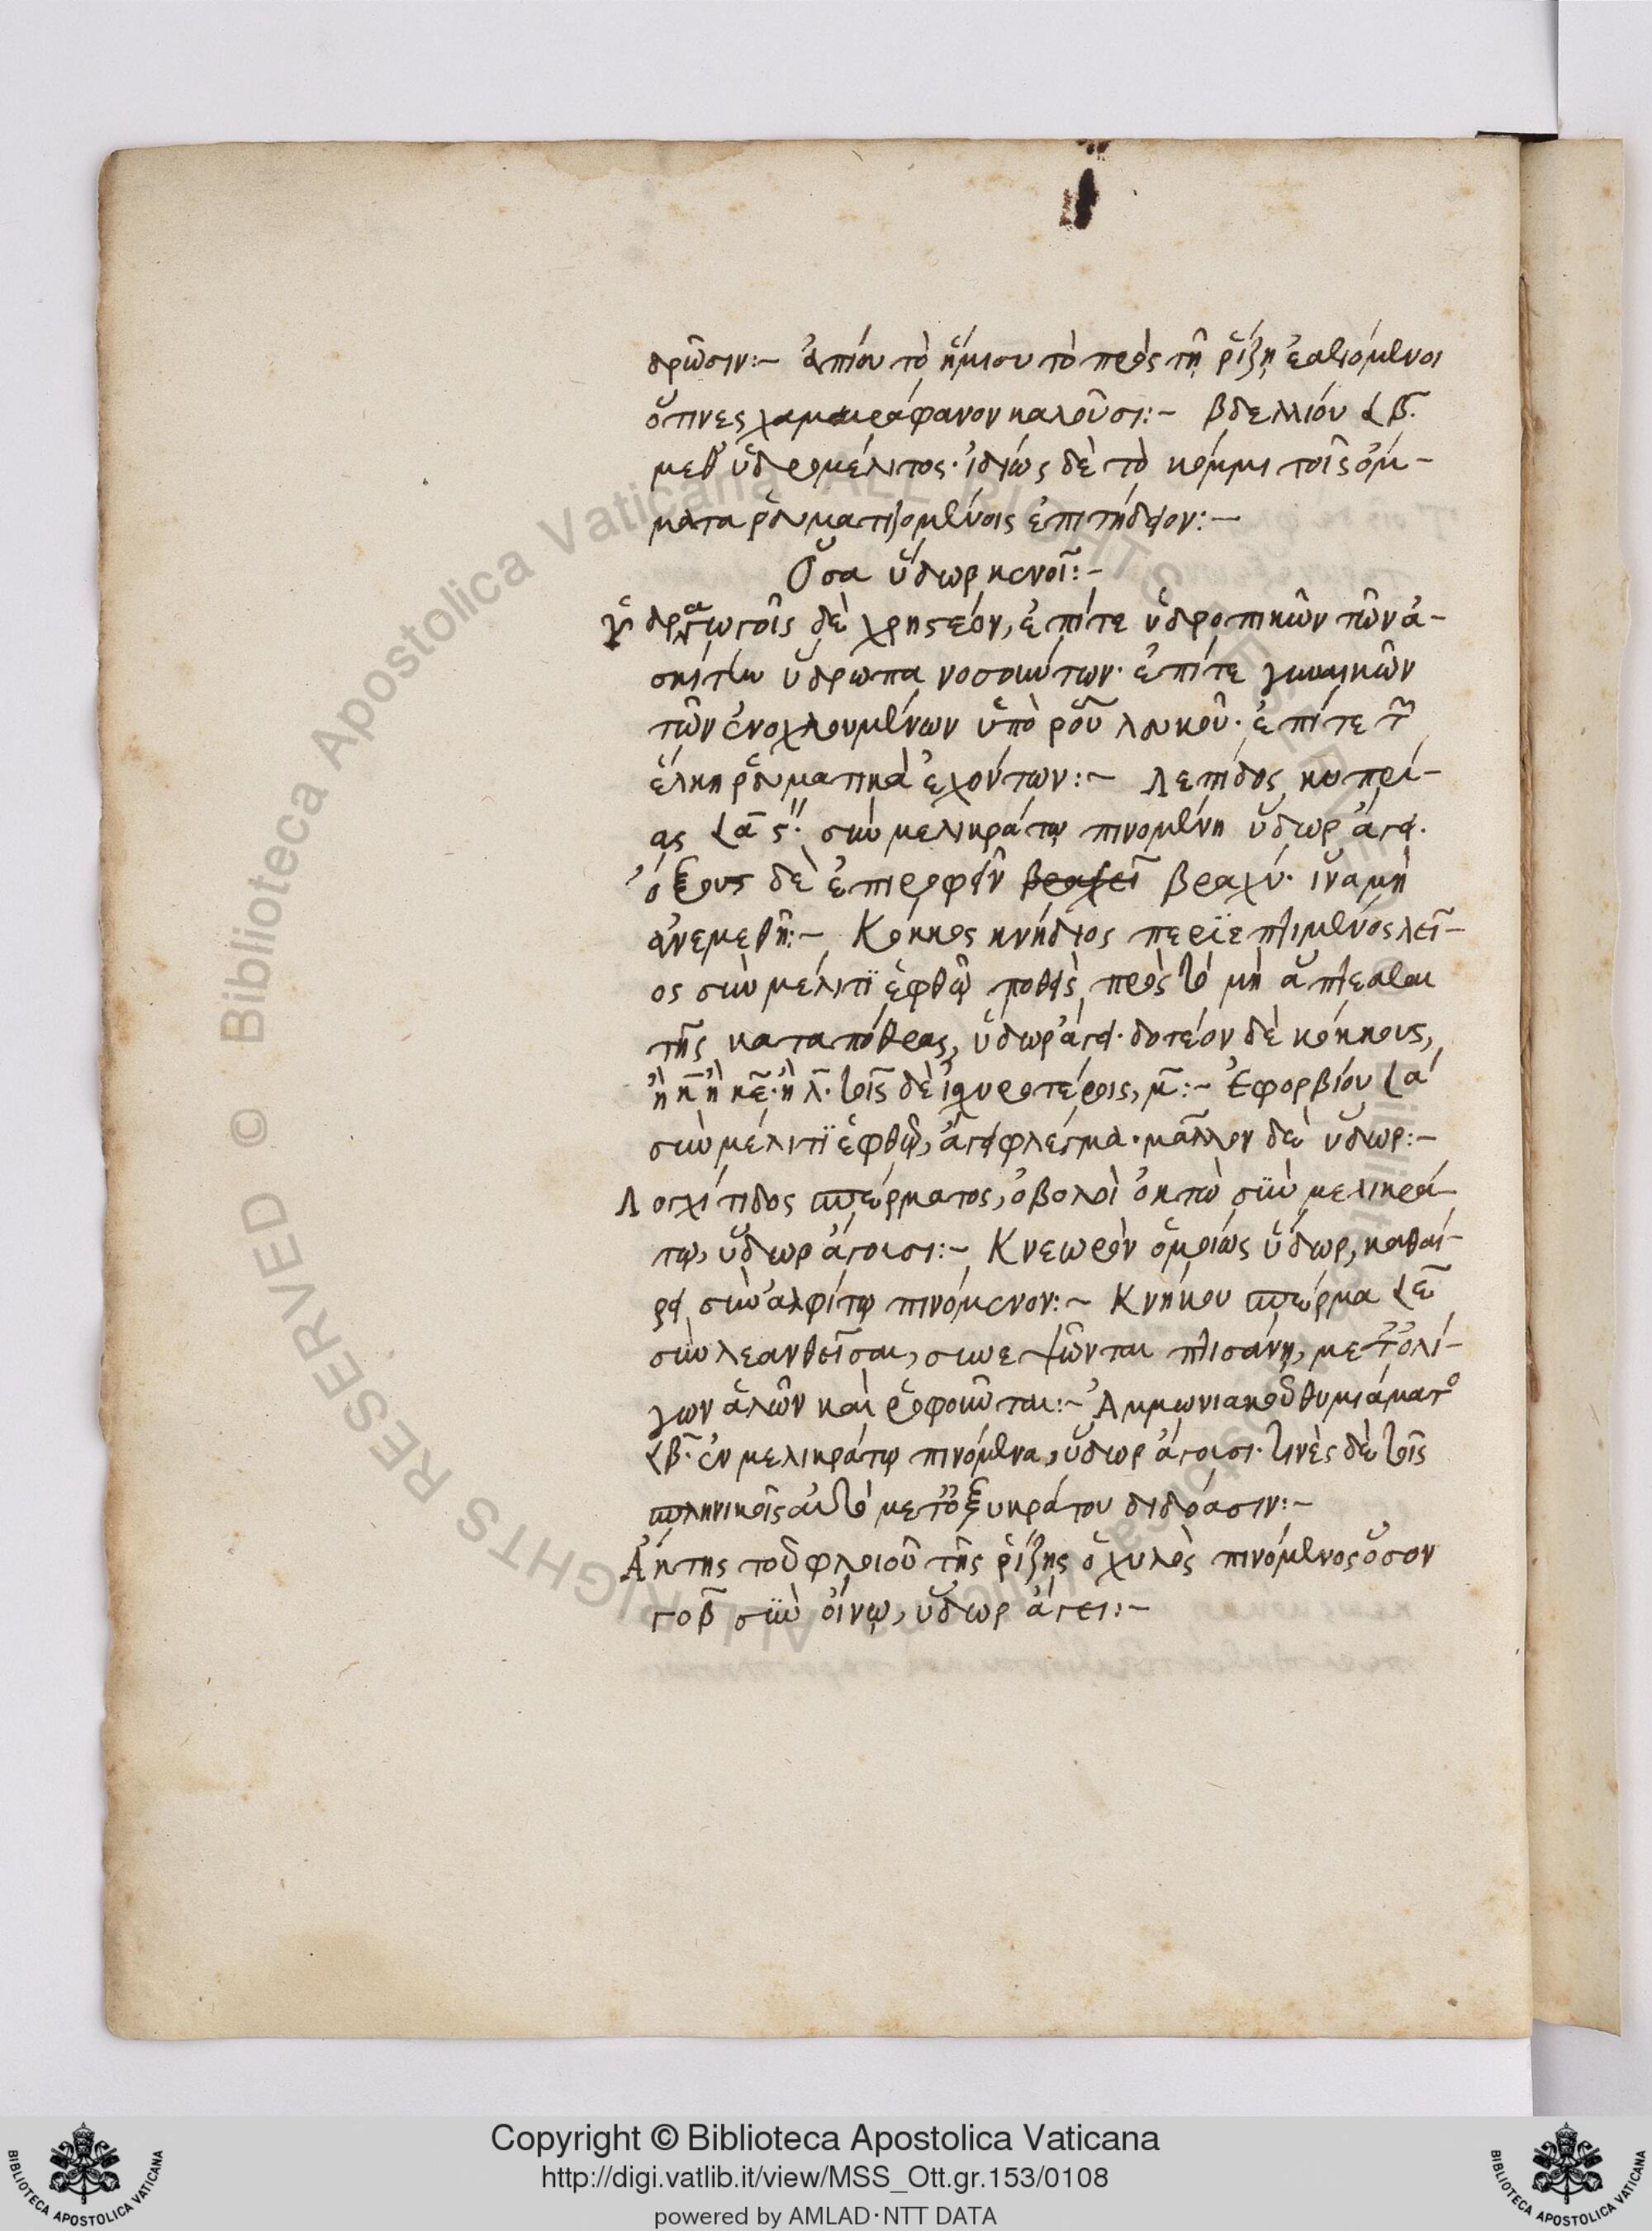 δρῶσιν:– ἀπίου τὸ ἥμισυ τὸ πρὸς τῇ ῥίζῃ ἐσθιόμενοι
ὅτινες χαμαιράφανον καλοῦσι:– βδελλίου 𐅻 β̄.
μεθ' ὑδρομέλιτος· ἰδίως δὲ τὸ κόμμι τοῖς ὄμ-
ματα ῥευματιζομένοις ἐπιτήδειον:–
Ὅσα ὕδωρ κενοῖ:–
Ὑδραγωγοῖς δὲ χρηστέον, ἐπί τε ὑδροπικῶν τῶν ἀ-
σκίτην ὕδρωπα νοσούντων· ἐπί τε γυναικῶν
τῶν ἐνοχλουμένων ὑπὸ ῥοῦ λευκοῦ· ἐπί τε τῶν
ἕλκη ῥευματικὰ ἐχόντων:– Λεπίδος κυπρί-
ας 𐅻 ᾱ ς''· σὺν μελικράτῳ πινομένη ὕδωρ ἄγει.
ὄξους δὲ ἐπιροφεῖν βραχεῖ βραχύ· ἵνα μὴ
ἀνεμεθῆ:– Κόκκος κνήδιος περιεπτισμένος λεῖ-
ος σὺν μέλιτι ἑφθῷ ποθεὶς πρὸς τὸ μὴ ἅπτεσθαι
τῆς καταπόθρας, ὕδωρ ἄγει· δοτέον δὲ κόκκους,
ἢ κ̄ ἢ κε̄· ἢ λ̄· τοῖς δὲ ἰσχυροτέροις, μ̄:– Ἐφορβίου 𐅻 ά
σὺν μέλιτι ἑφθῷ, ἄγει φλέγμα· μᾶλλον δὲ ὕδωρ:–
Λογχίτιδος σπέρματος, ὀβολοὶ ὀκτὼ σὺν μελικρά-
τῳ, ὕδωρ ἄγουσι:– Κνεωρὸν ὁμοίως ὕδωρ, καθαί-
ρει σὺν ἀλφίτῳ πινόμενον:– Κνήκου σπέρμα 𐅻 ε̄
συλλεανθεῖσαι, συνεψῶνται πτισάνῃ, μετ' ὀλί-
γων ἁλῶν καὶ ῥοφοῦνται:– Ἀμμωνιακοῦ θυμιάματο
𐅻 β̄· ἐν μελικράτῳ πινόμενα, ὕδωρ ἄγουσι· τινὲς δὲ τοῖς
σπληνικοῖς αὐτὸ μετ' ὀξυκράτου διδόασιν:–
Ἀκτης τοῦ φλοιοῦ τῆς ῥίζης ὁ χυλὸς πινόμενος ὅσον
γο β̄ σὺν οἴνῳ, ὕδωρ ἄγει:–
Copyright © Biblioteca Apostolica Vaticana
http://digi.vatlib.it/view/MSS_Ott.gr.153/0108
powered by AMLAD·NTT DATA